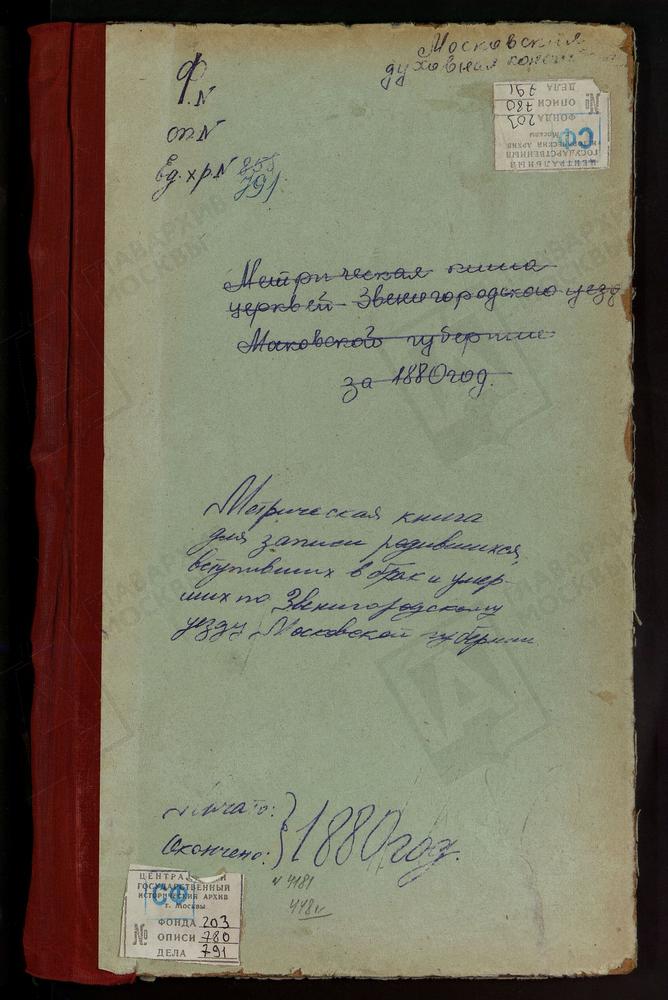 Московская
духовная
Ф. N
оп N
Ед. хр. N 255
791
ЦЕНТРАЛЬНЫЙ
ГОСУДАРСТВЕННЫЙ
ИСТОРИЧЕСКИЙ АРХИВ
г. Москвы
СФ
ФОНДА 203
№ ОПИСИ 780
ДЕЛА 791
Метрическая книга
церквей Звенигородского уезд
Московской губернии
за 1880 год.
Метрическая книга
для записи родившихся,
вступивших в брак и умер-
ших по Звенигородскому
уезду Московской губернии
Начато:
Окончено: } 1880 год.
ЦЕНТРАЛЬНЫЙ
ГОСУДАРСТВЕННЫЙ
ИСТОРИЧЕСКИЙ АРХИВ
г. Москвы
СФ
ФОНДА 203
№ ОПИСИ 780
ДЕЛА 791
ГЛАВАРХИВ
МОСКВЫ